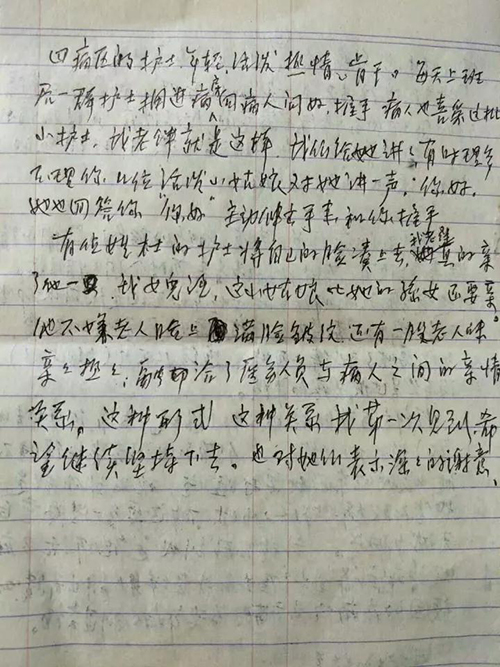 四病区的护士年轻,活泼热情、肯干。每天上班
后一群护士拥进病房向病人问好,握手 病人也喜欢这批
小护士,我老伴就是这样,我们给她讲讲有时理多
不理你,几位活泼小姑娘对她讲一声,你好,
她她回答你“你好”主动伸出手来和你握手
有位姓杜的护士将自己的脸凑上去,我老伴真的亲
了他一口,我女儿涯,这小姑娘比她的孩女还要亲。
他不嫌老人脸上满脸皱纹,还有一股老人味
亲亲热热,融洽了医务人员与病人之间的亲情
关系。这种形式 这种关系我第一次见到,希
望继续坚持下去。也对她们表示深深的谢意